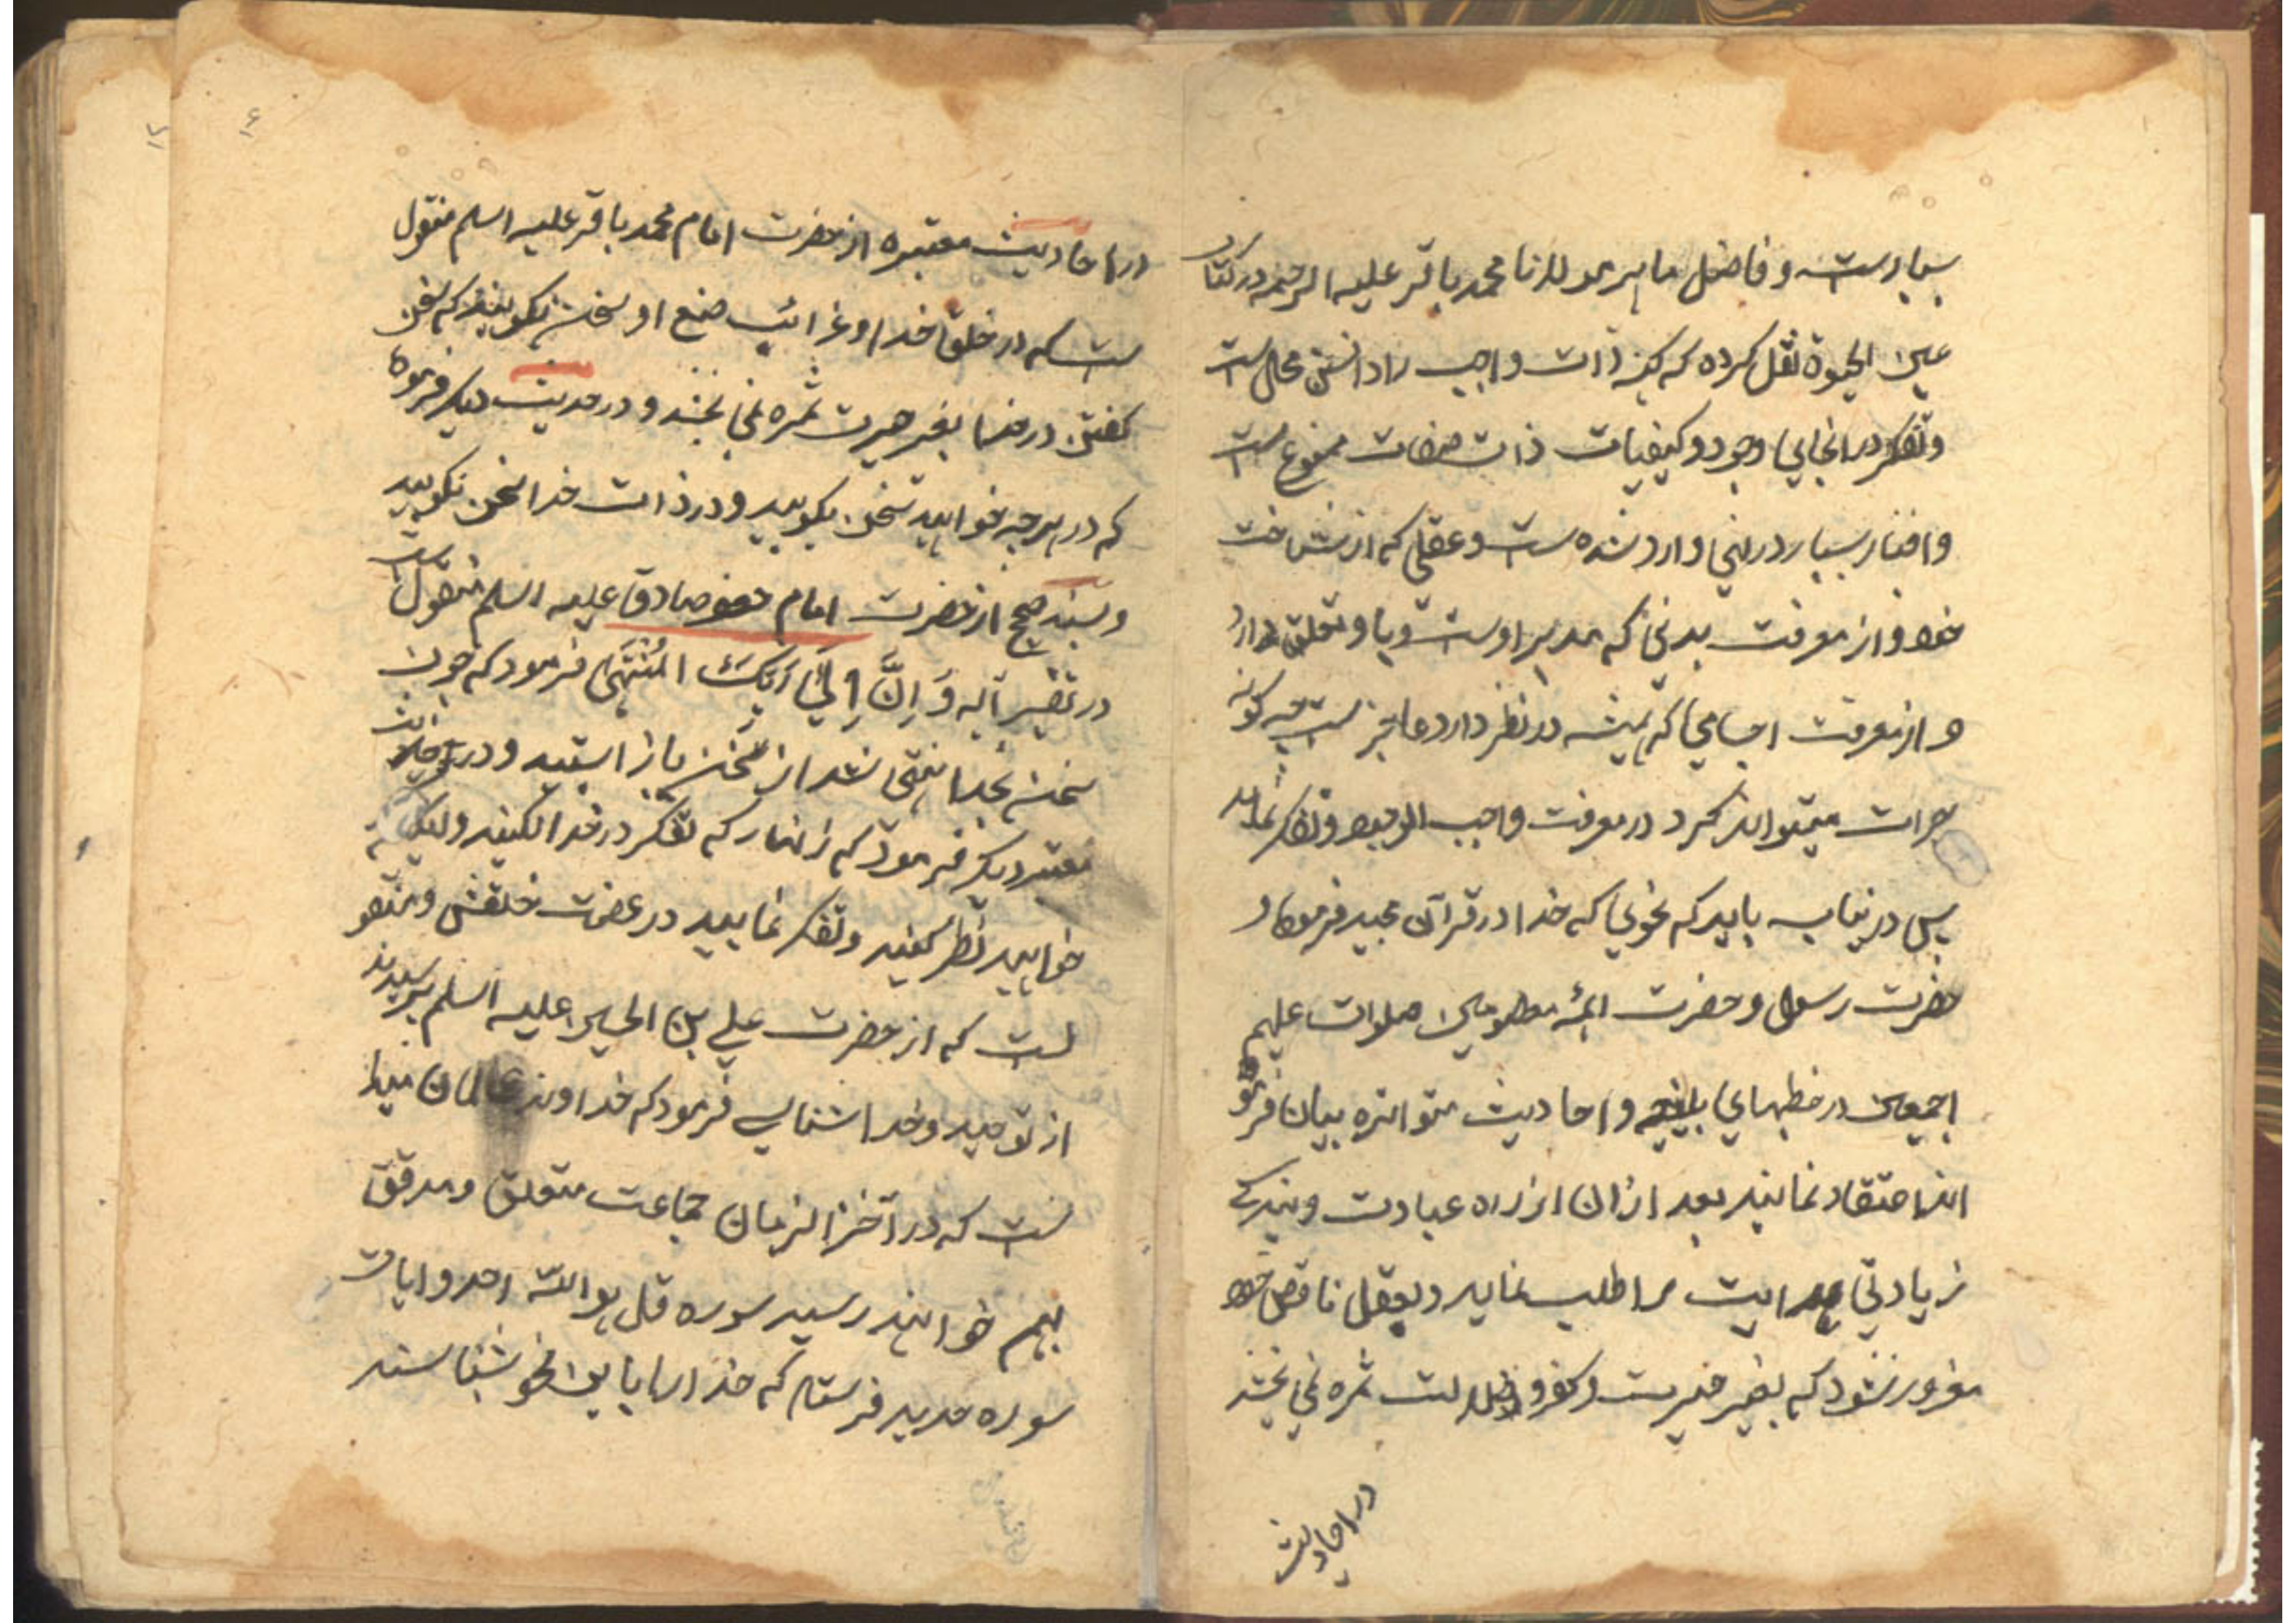 بسیارست و فاضل ماهر مولانا محمد باقر علیه الرحمه در کتاب
عین الحیوة نقل کرده که کنه ذات واجب را دانستن محال ست
و تفکر در انحای وجود و کیفیات ذات صفات ممنوع ست
و اخبار بسیار در نهی وارد شده ست و عقلی که از شناخت
خود و از معرفت بدنی که مدبر اوست و با و تعلق دارد
و از معرفت اجسامی که همیشه در نظر دارد عاجز ست چه گونه
جرات میتواند کرد در معرفت واجب الوجود و تفکر نماید
پس درینباب باید که نحوی که خدا در قرآن مجید فرموده و
حضرت رسول و حضرت ائمه معصومین صلوات علیهم
اجمعین در خطبهای بلیغه و احادیث متواتره بیان فرمو
اند اعتقاد نمایند بعد ازان از راه عبادت و بندگی
زیادتی هدایت را طلب نماید و بعقل ناقص خود
مغرور نشود که بغیر حیرت و کفر و ضلالت ثمره نمی بخشد
در احادیث
۱۶
در احادیث معتبره از حضرت امام محمد باقر علیه اسلم منقول
ست که در خلق خدا و غرائب صنع او سخن بگویند که سخن
گفتن در خدا بغیر حیرت ثمره نمی بخشد و در حدیث دیگر فرموده
که در هر چه خواهید سخن بگویید و در ذات خدا سخن نگویید
و بسند صحیح از حضرت امام جعفر صادق علیه اسلم منقول ست
در تفسیر آیه وَ اِنَّ اِلیٰ رَبِّکَ المُنْتَهیٰ فرمود که چون
سخن بخدا منتهی شد از سخن باز ایستید و در احادیث
معتبر دیگر فرمود که زنهار که تفکر در خدا نکنید ولیکن
خواهید نظر کنید و تفکر نمایید در عضمت خلقش و منقو
لست که از حضرت علی بن الحسین علیه اسلم پرسیدند
از توحید و خدا شناسی فرمود که خداوند عالمان میدا
نست که در آخر الزمان جماعت متعلق و مدقق
بهم خواهند رسید سوره قل هو الله احد و ایات
سوره حدید فرستاد که خدا را باین نحو بشناسند